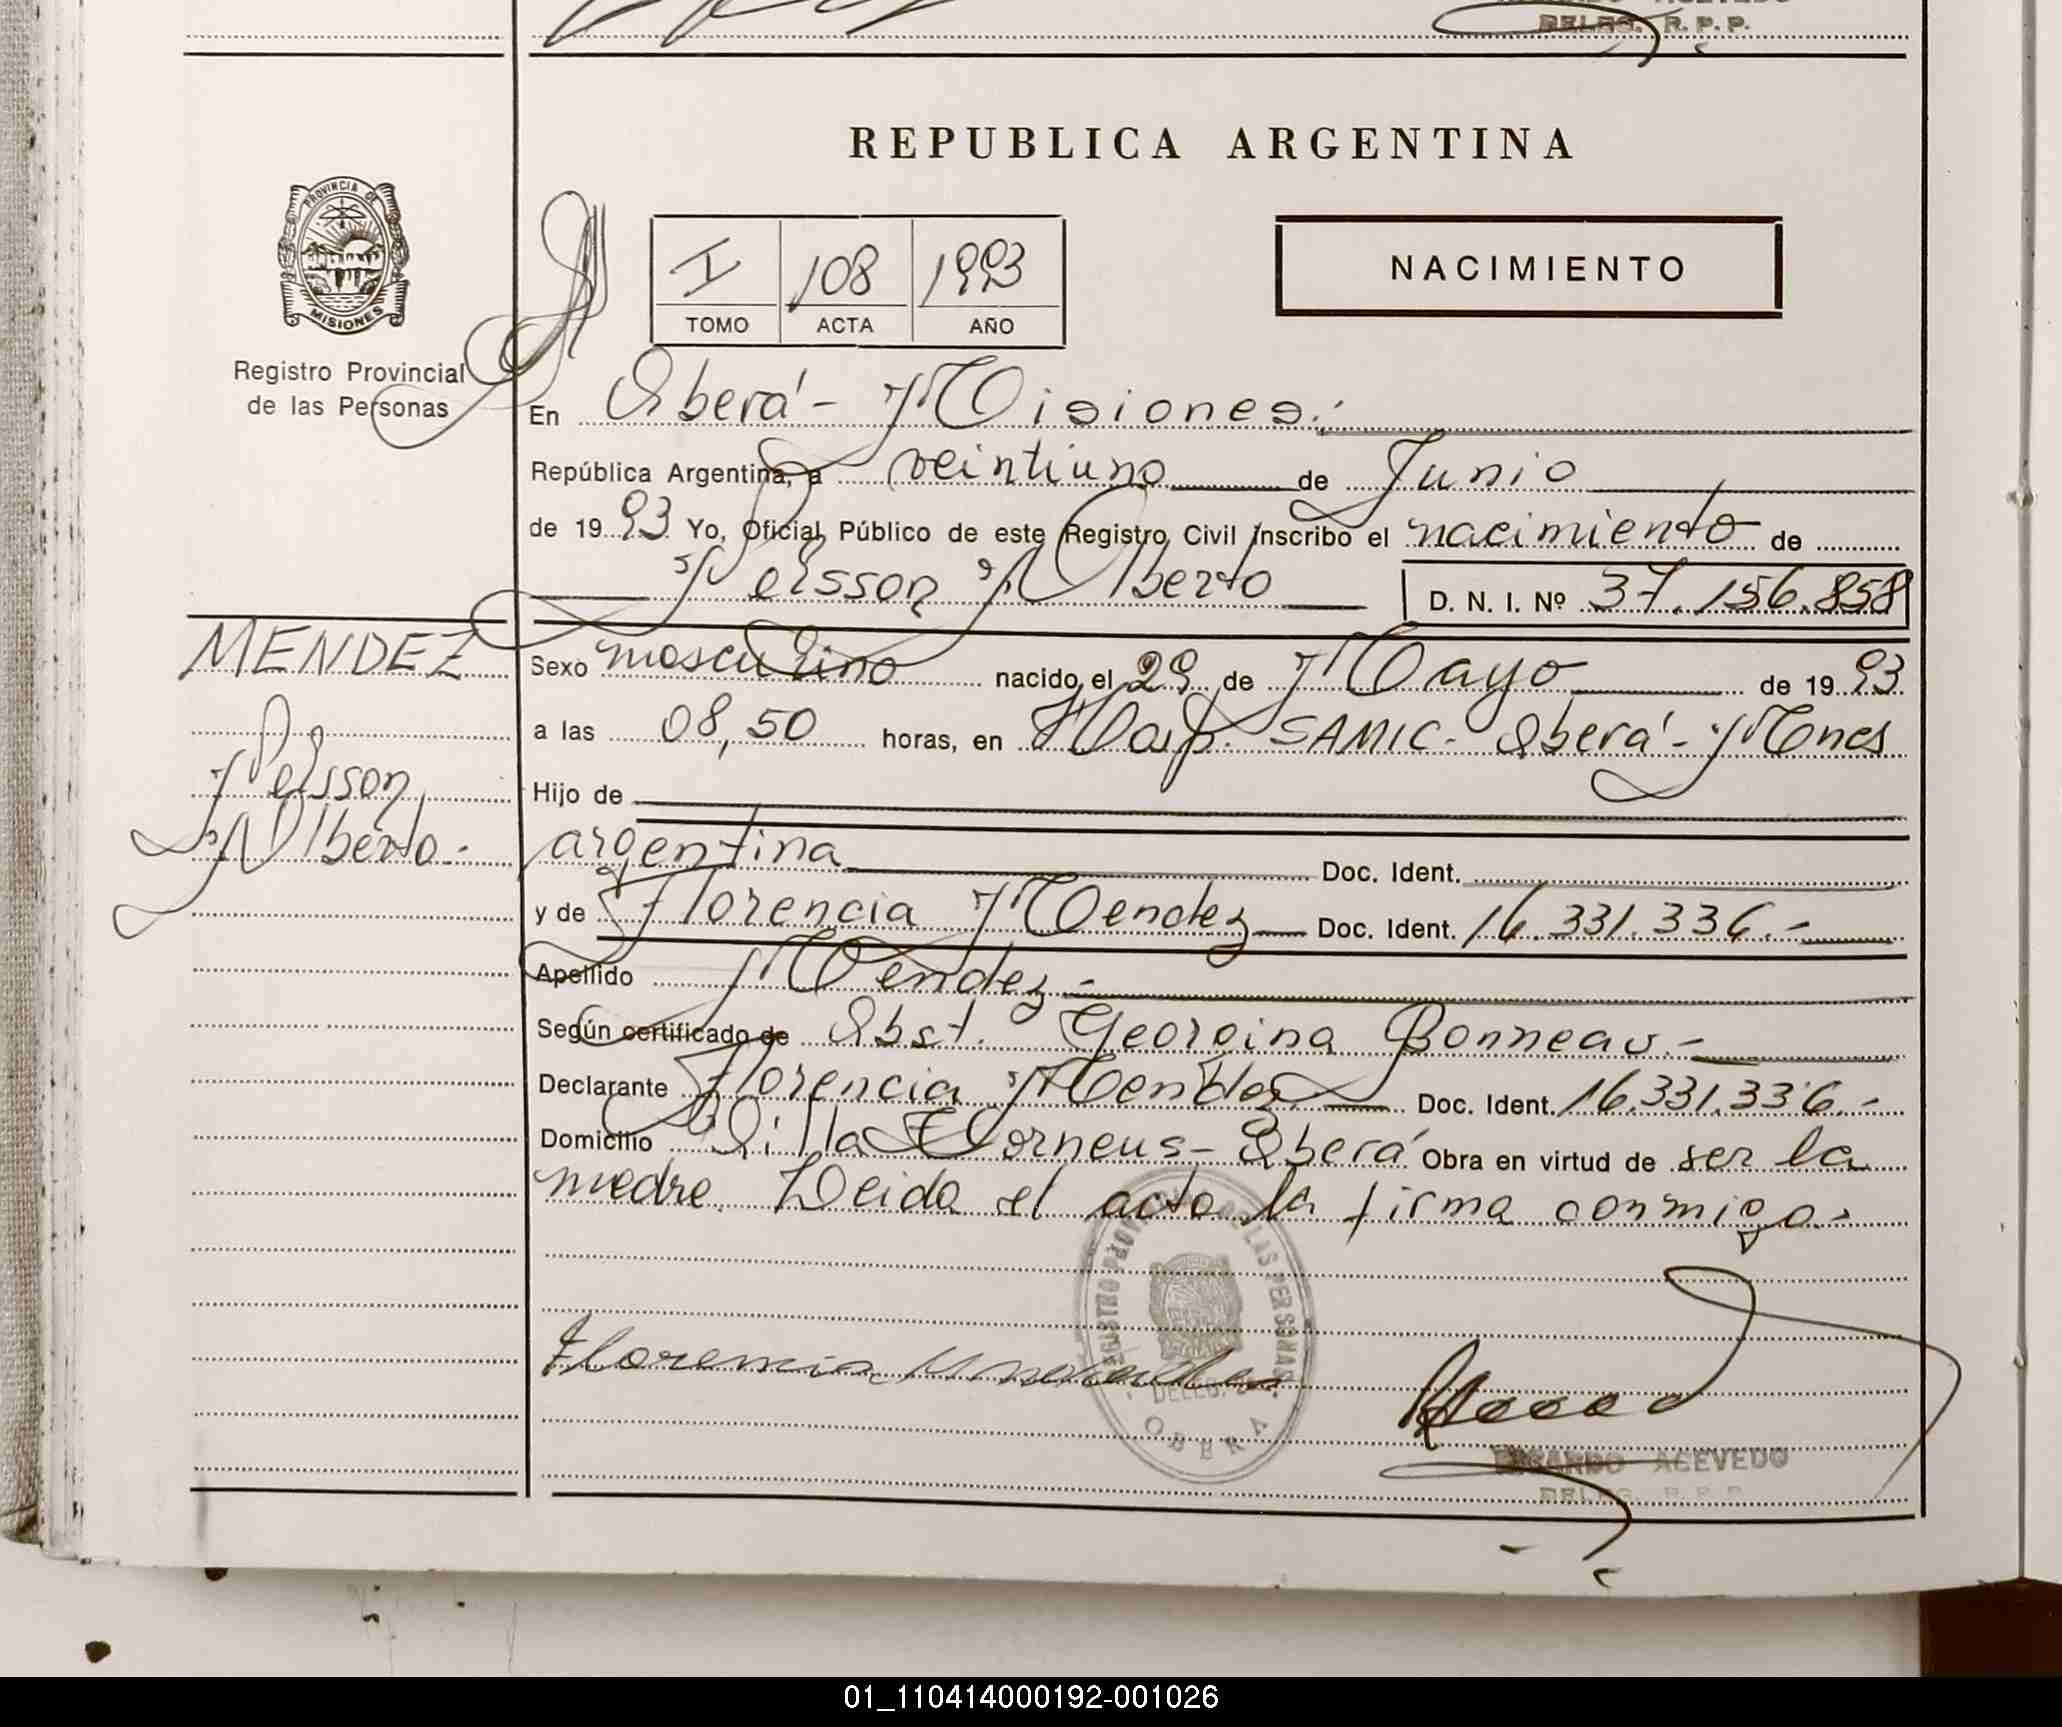 DELEG. R. P. P.
REPUBLICA ARGENTINA
PROVINCIA DE
MISIONES
I 108 1993
TOMO ACTA AÑO
NACIMIENTO
Registro Provincial
de las Personas
En Oberá - Misiones.-
República Argentina, a veintiuno de Junio
de 1993 Yo, Oficial Público de este Registro Civil Inscribo el nacimiento de
Nelsson Alberto D. N. I. Nº 37.156.858
MENDEZ
Nelsson
Alberto.-
Sexo masculino nacido el 29 de Mayo de 1993
a las 08,50 horas, en Hosp. SAMIC - Oberá - Mnes
Hijo de
argentina Doc. Ident.
y de Florencia Mendez Doc. Ident. 16.331.336.-
Apellido Mendez -
Según certificado de Obst. Georgina Bonneau.-
Declarante Florencia Mendez Doc. Ident. 16.331.336.-
Domicilio Villa Oberá Obra en virtud de ser la
madre. Leida el acta la firma conmigo.-
REGISTRO PROVINCIAL DE LAS PERSONAS
DELEG.
OBERA
Florencia
RICARDO ACEVEDO
DELEG. R. P. P.
01_110414000192-001026